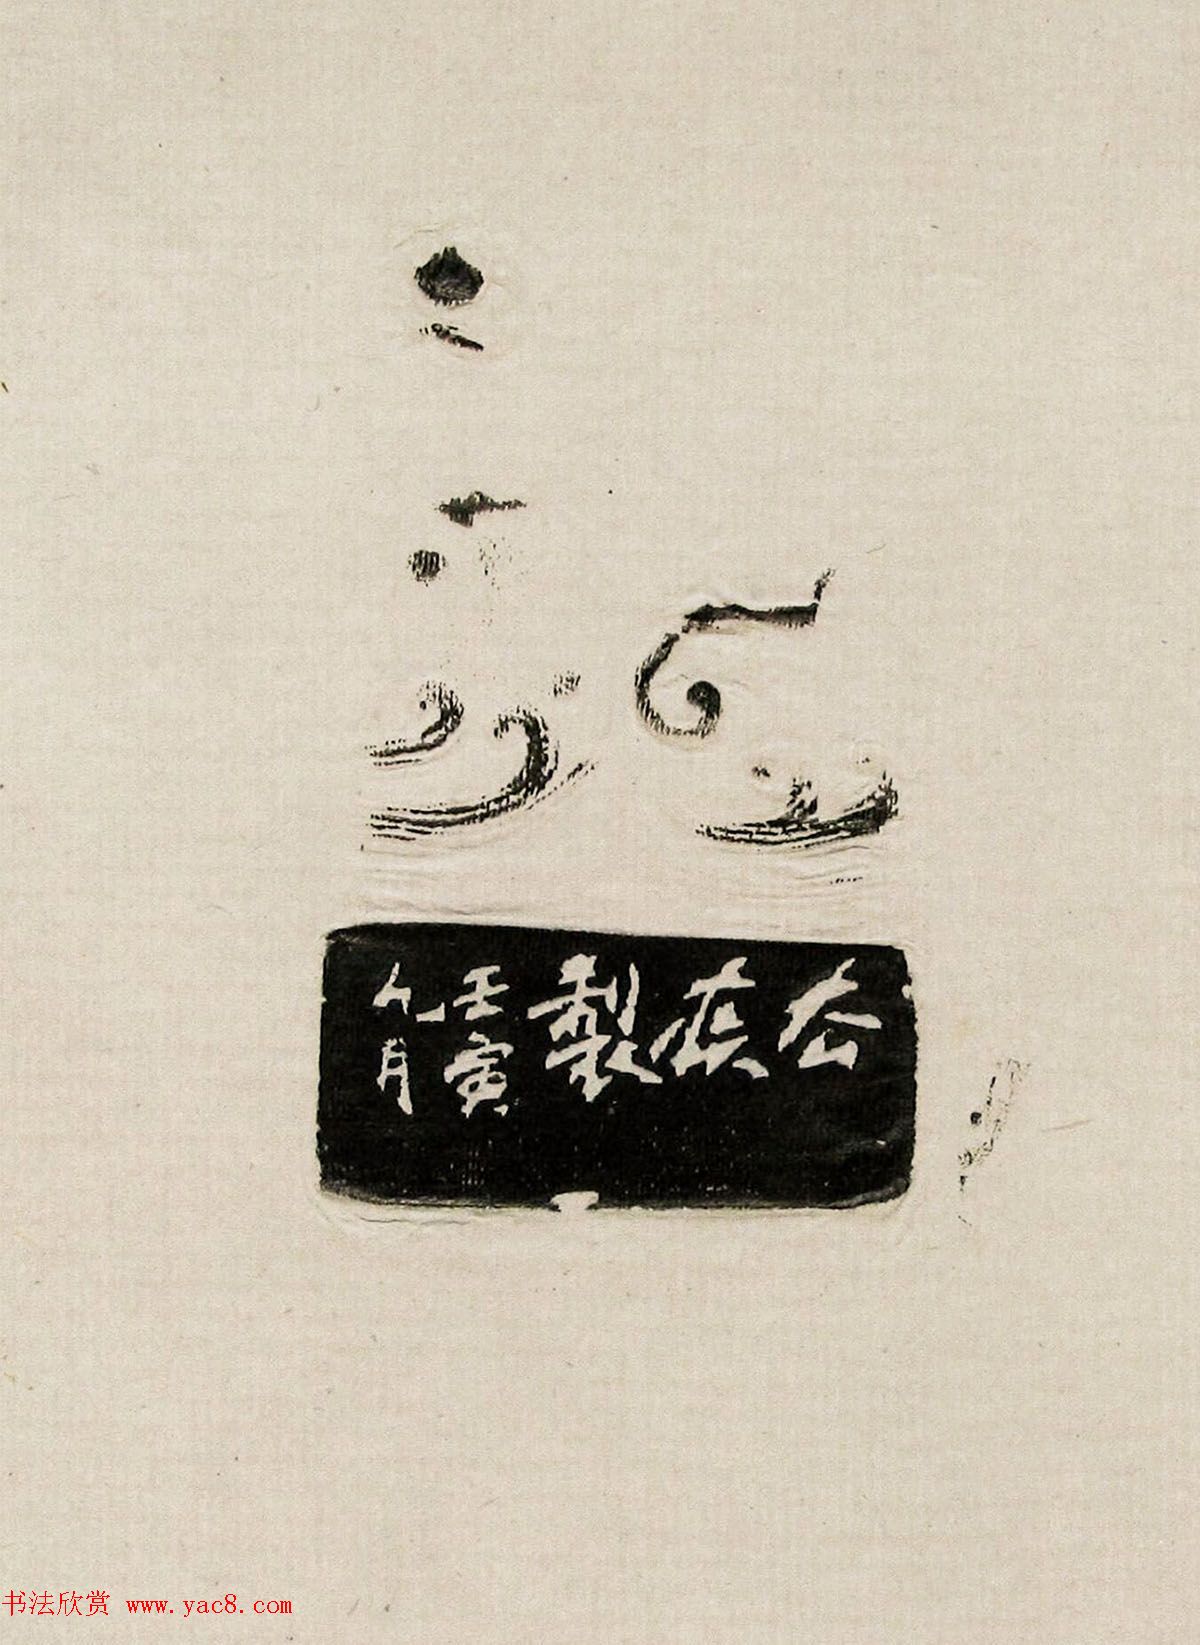 去疾製
壬寅
九月
书法欣赏 www.yac8.com